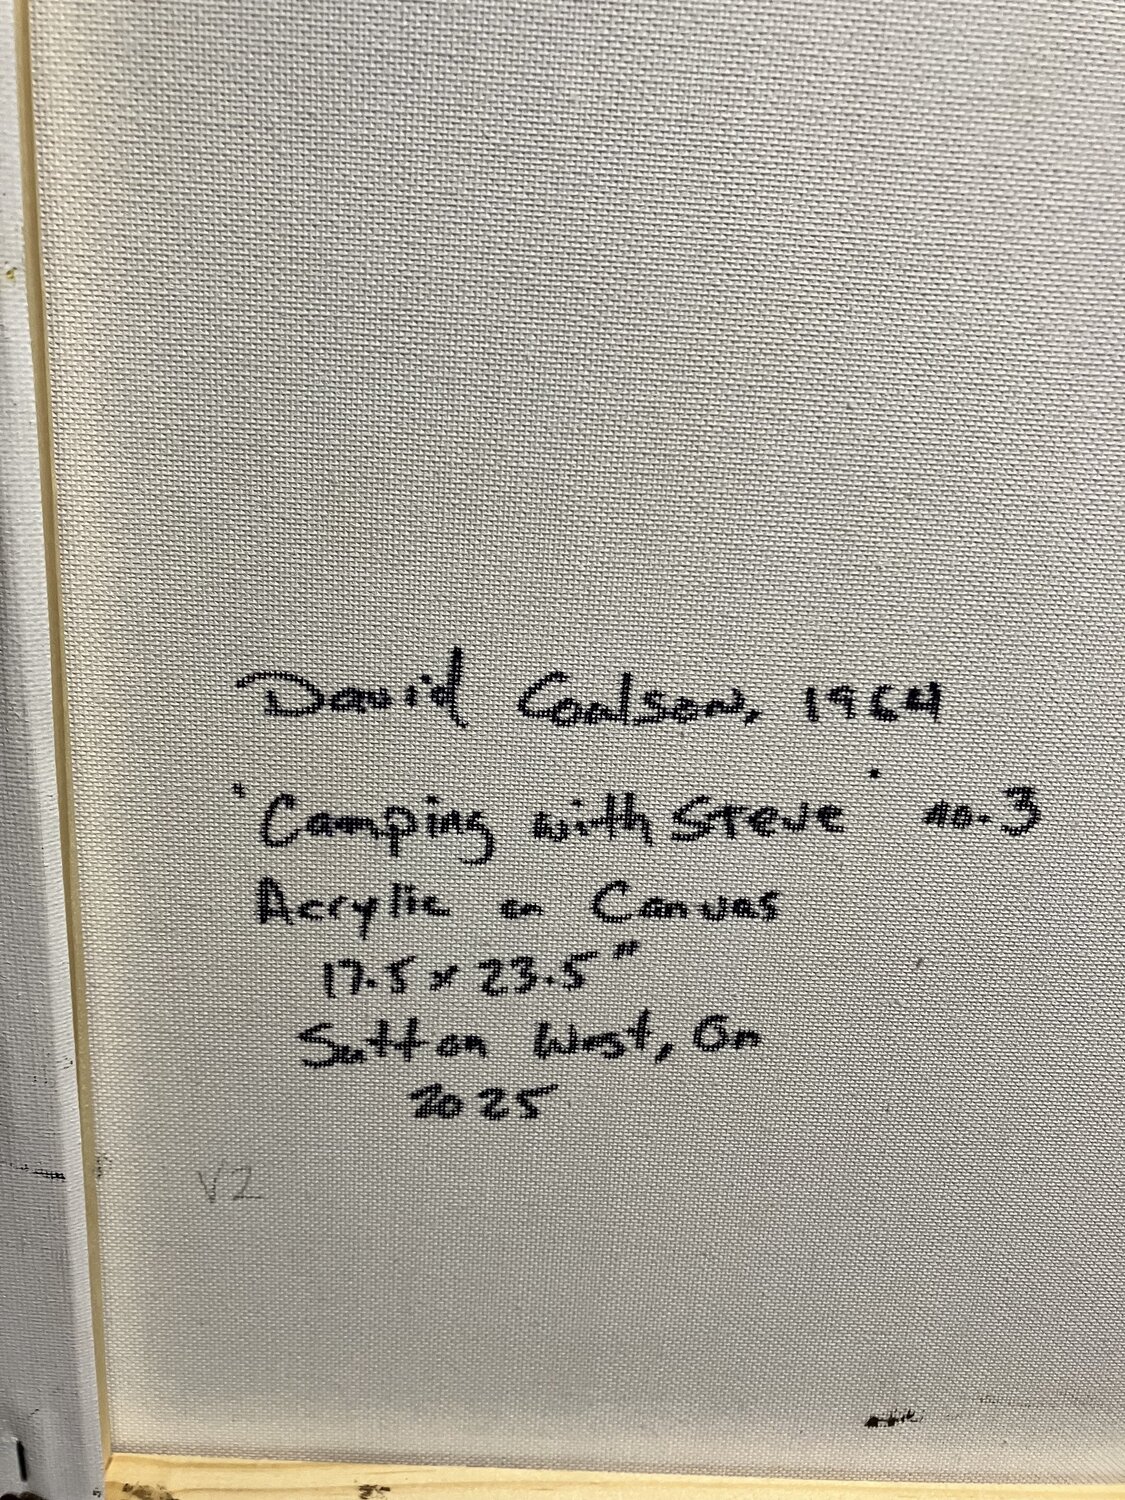 David Coulson, 1964
"Camping with Steve" no.3
Acrylic on Canvas
17.5 x 23.5"
Sutton West, On
2025
V2